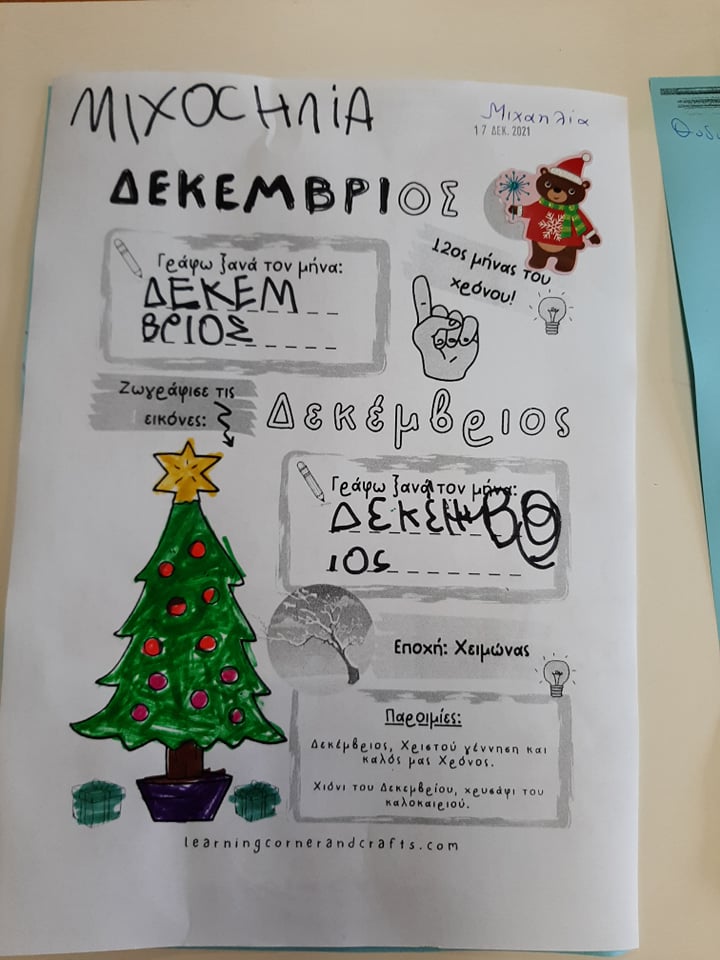 ΜΙΧΟCΗΛΙΑ
Μιχαηλία
17 ΔΕΚ. 2021
ΔΕΚΕΜΒΡΙΟΣ
12ος μήνας του
χρόνου!
Γράφω ξανά τον μήνα:
ΔΕΚΕΜ
ΒΡΙΟΣ
Ζωγράφισε τις
εικόνες:
Δεκέμβριος
Γράφω ξανά τον μήνα:
ιος
Εποχή: Χειμώνας
Παροιμίες:
Δεκέμβριος, Χριστού γέννηση και
καλός μας Χρόνος.
Χιόνι του Δεκεμβρίου, χρυσάφι του
καλοκαιριού.
learningcornerandcrafts.com